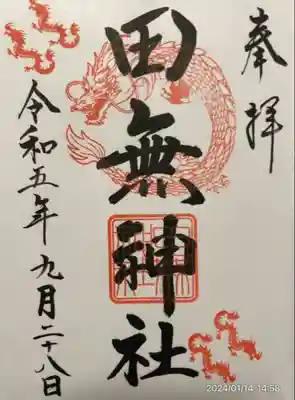 奉拝
田無神社
令和五年九月二十八日
2024/01/14 14:58